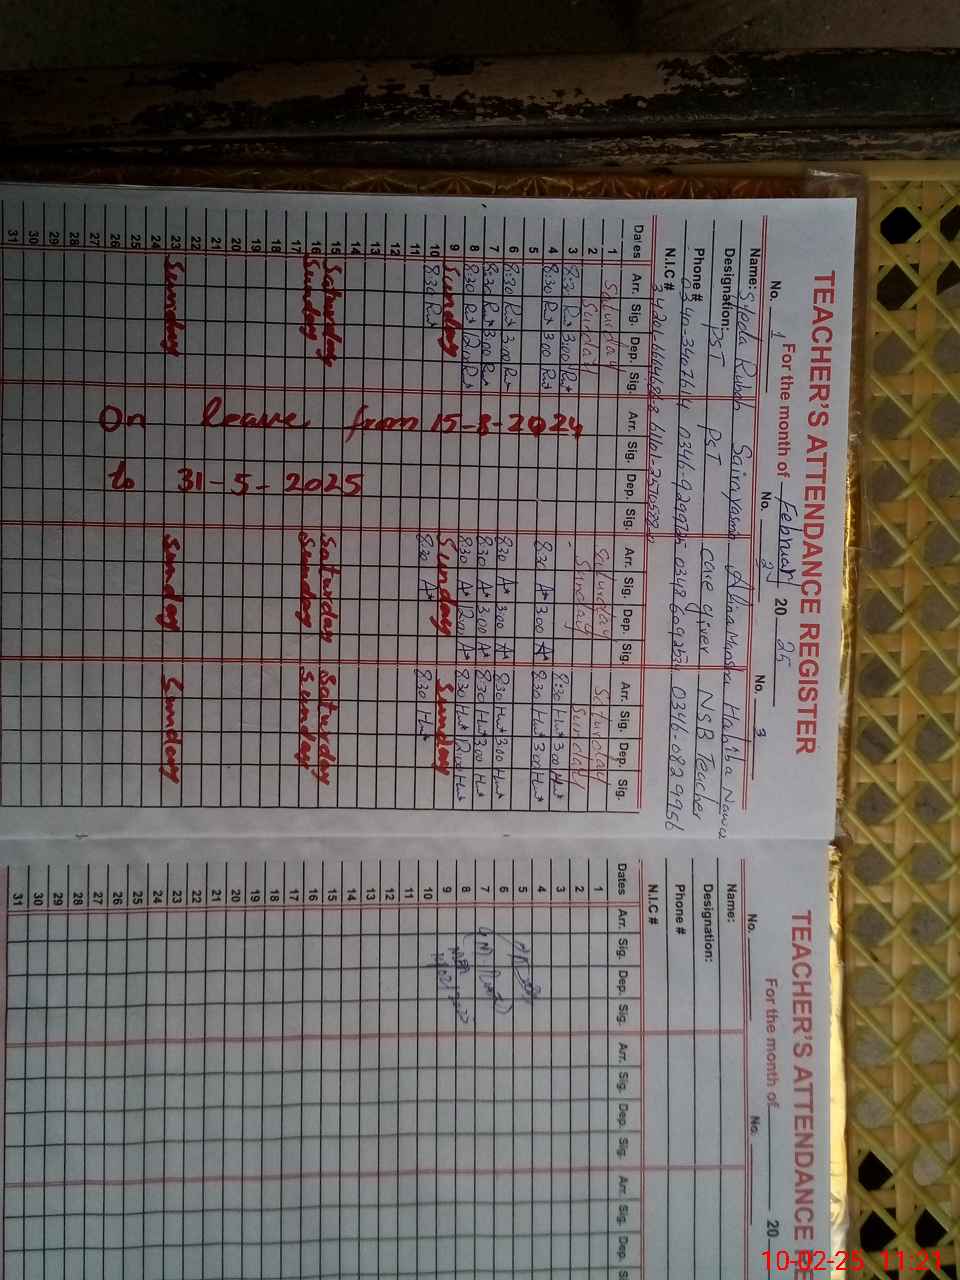 TEACHER'S ATTENDANCE REGISTER
For the month of Februari 20 25
No. 1 No. 2 No. 3
Name: Syeda Rubab Saira yasmin Alina Habiba Nawaz
Designation: PST PST care giver NSB Teacher
Phone #
N.I.C #
Dates Arr. Sig. Dep. Sig. Arr. Sig. Dep. Sig. Arr. Sig. Dep. Sig. Arr. Sig. Dep. Sig.
1 Saturday Saturday Saturday
2 Sunday Sunday Sunday
3 8:30 3:00 - 8:30 3:00
4 8:30 3:00 8:30 3:00 8:30 3:00
5
6 8:30 3:00 8:30 3:00 8:30 3:00
7 8:30 3:00 8:30 3:00 8:30 3:00
8 8:30 12:00 8:30 12:00 8:30 12:00
9 Sunday Sunday Sunday
10 8:30 8:30 8:30
11
12
13
14
15 Saturday Saturday Saturday
16 Sunday Sunday Sunday
17
18
19
20
21
22
23 Sunday Sunday Sunday
24
25
26
27
28
29
30
31
On leave from 15-8-2024
to 31-5-2025
TEACHER'S ATTENDANCE RE
For the month of 20
No. No.
Name:
Designation:
Phone #
N.I.C #
Dates Arr. Sig. Dep. Sig. Arr. Sig. Dep. Sig. Arr. Sig. Dep. S
1
2
3
4
5
6
7
8
9
10
11
12
13
14
15
16
17
18
19
20
21
22
23
24
25
26
27
28
29
30
31
10-02-25 11:21